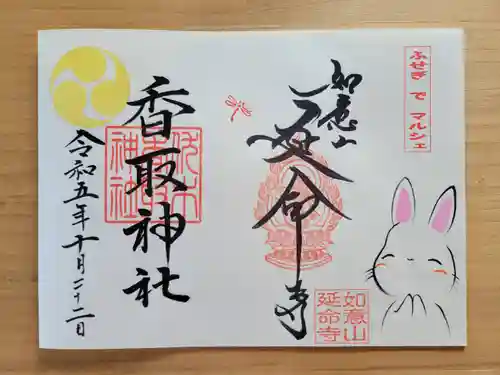 ふせぎ で マルシェ
如意山
延命寺
如意山
延命寺
香取神社
神社
令和五年十月二十二日